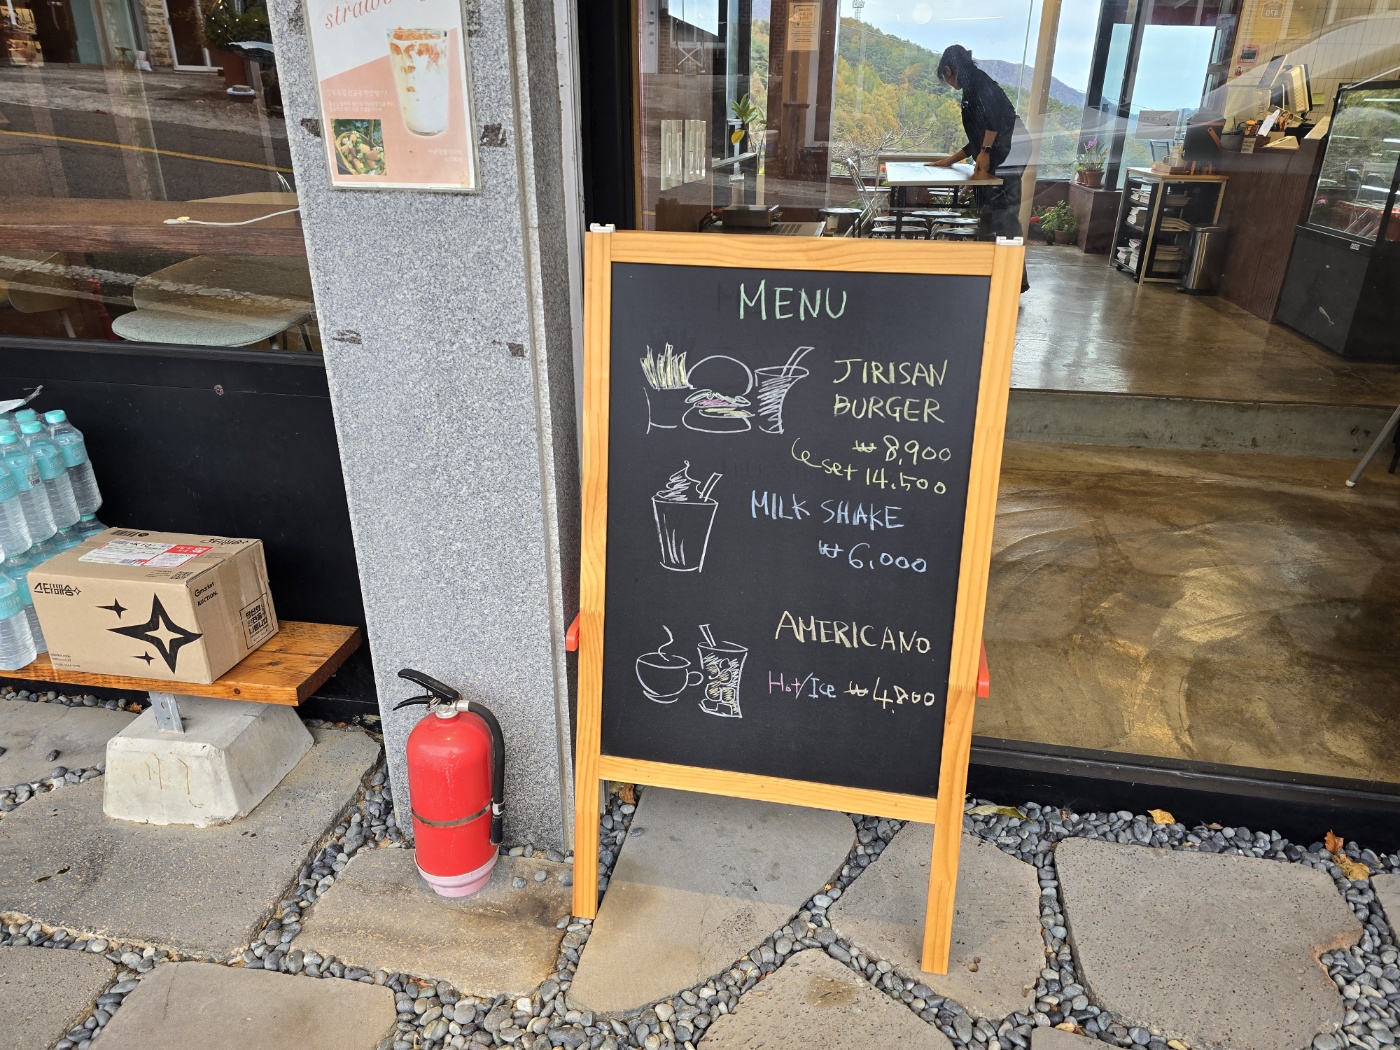 MENU
JIRISAN
BURGER
₩8,900
set 14,500
MILK SHAKE
₩6,000
AMERICANO
Hot/Ice ₩4,800
스타배송
Gmarket
AUCTION.